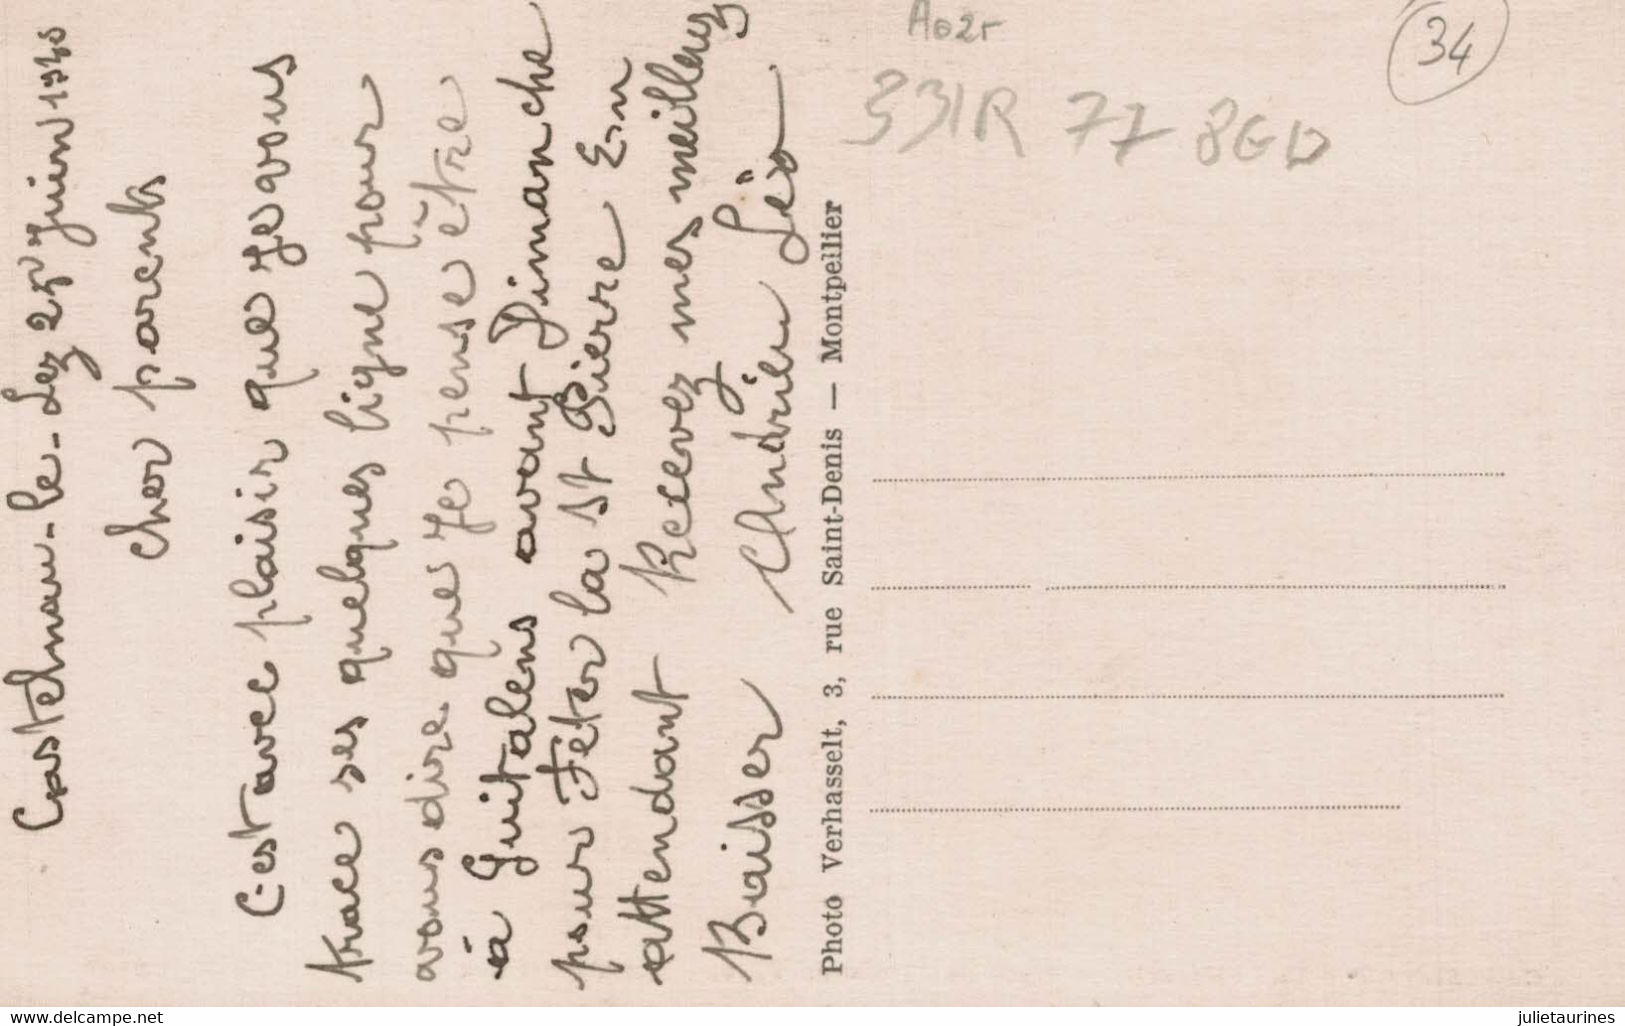 Castelnau-le-Lez 25 Juin 1940
Cher parents
C'est avec plaisir que Je vous
trace ses quelques ligne pour
vous dire que Je pense être
à Guitalens avant Dimanche
pour Fêter la St Pierre En
attendant Recevez mes meilleurs
Baisser Andrieu Léo
Photo Verhasselt, 3, rue Saint-Denis — Montpellier
A02r
34
331R 77 8GD
www.delcampe.net
julietaurines